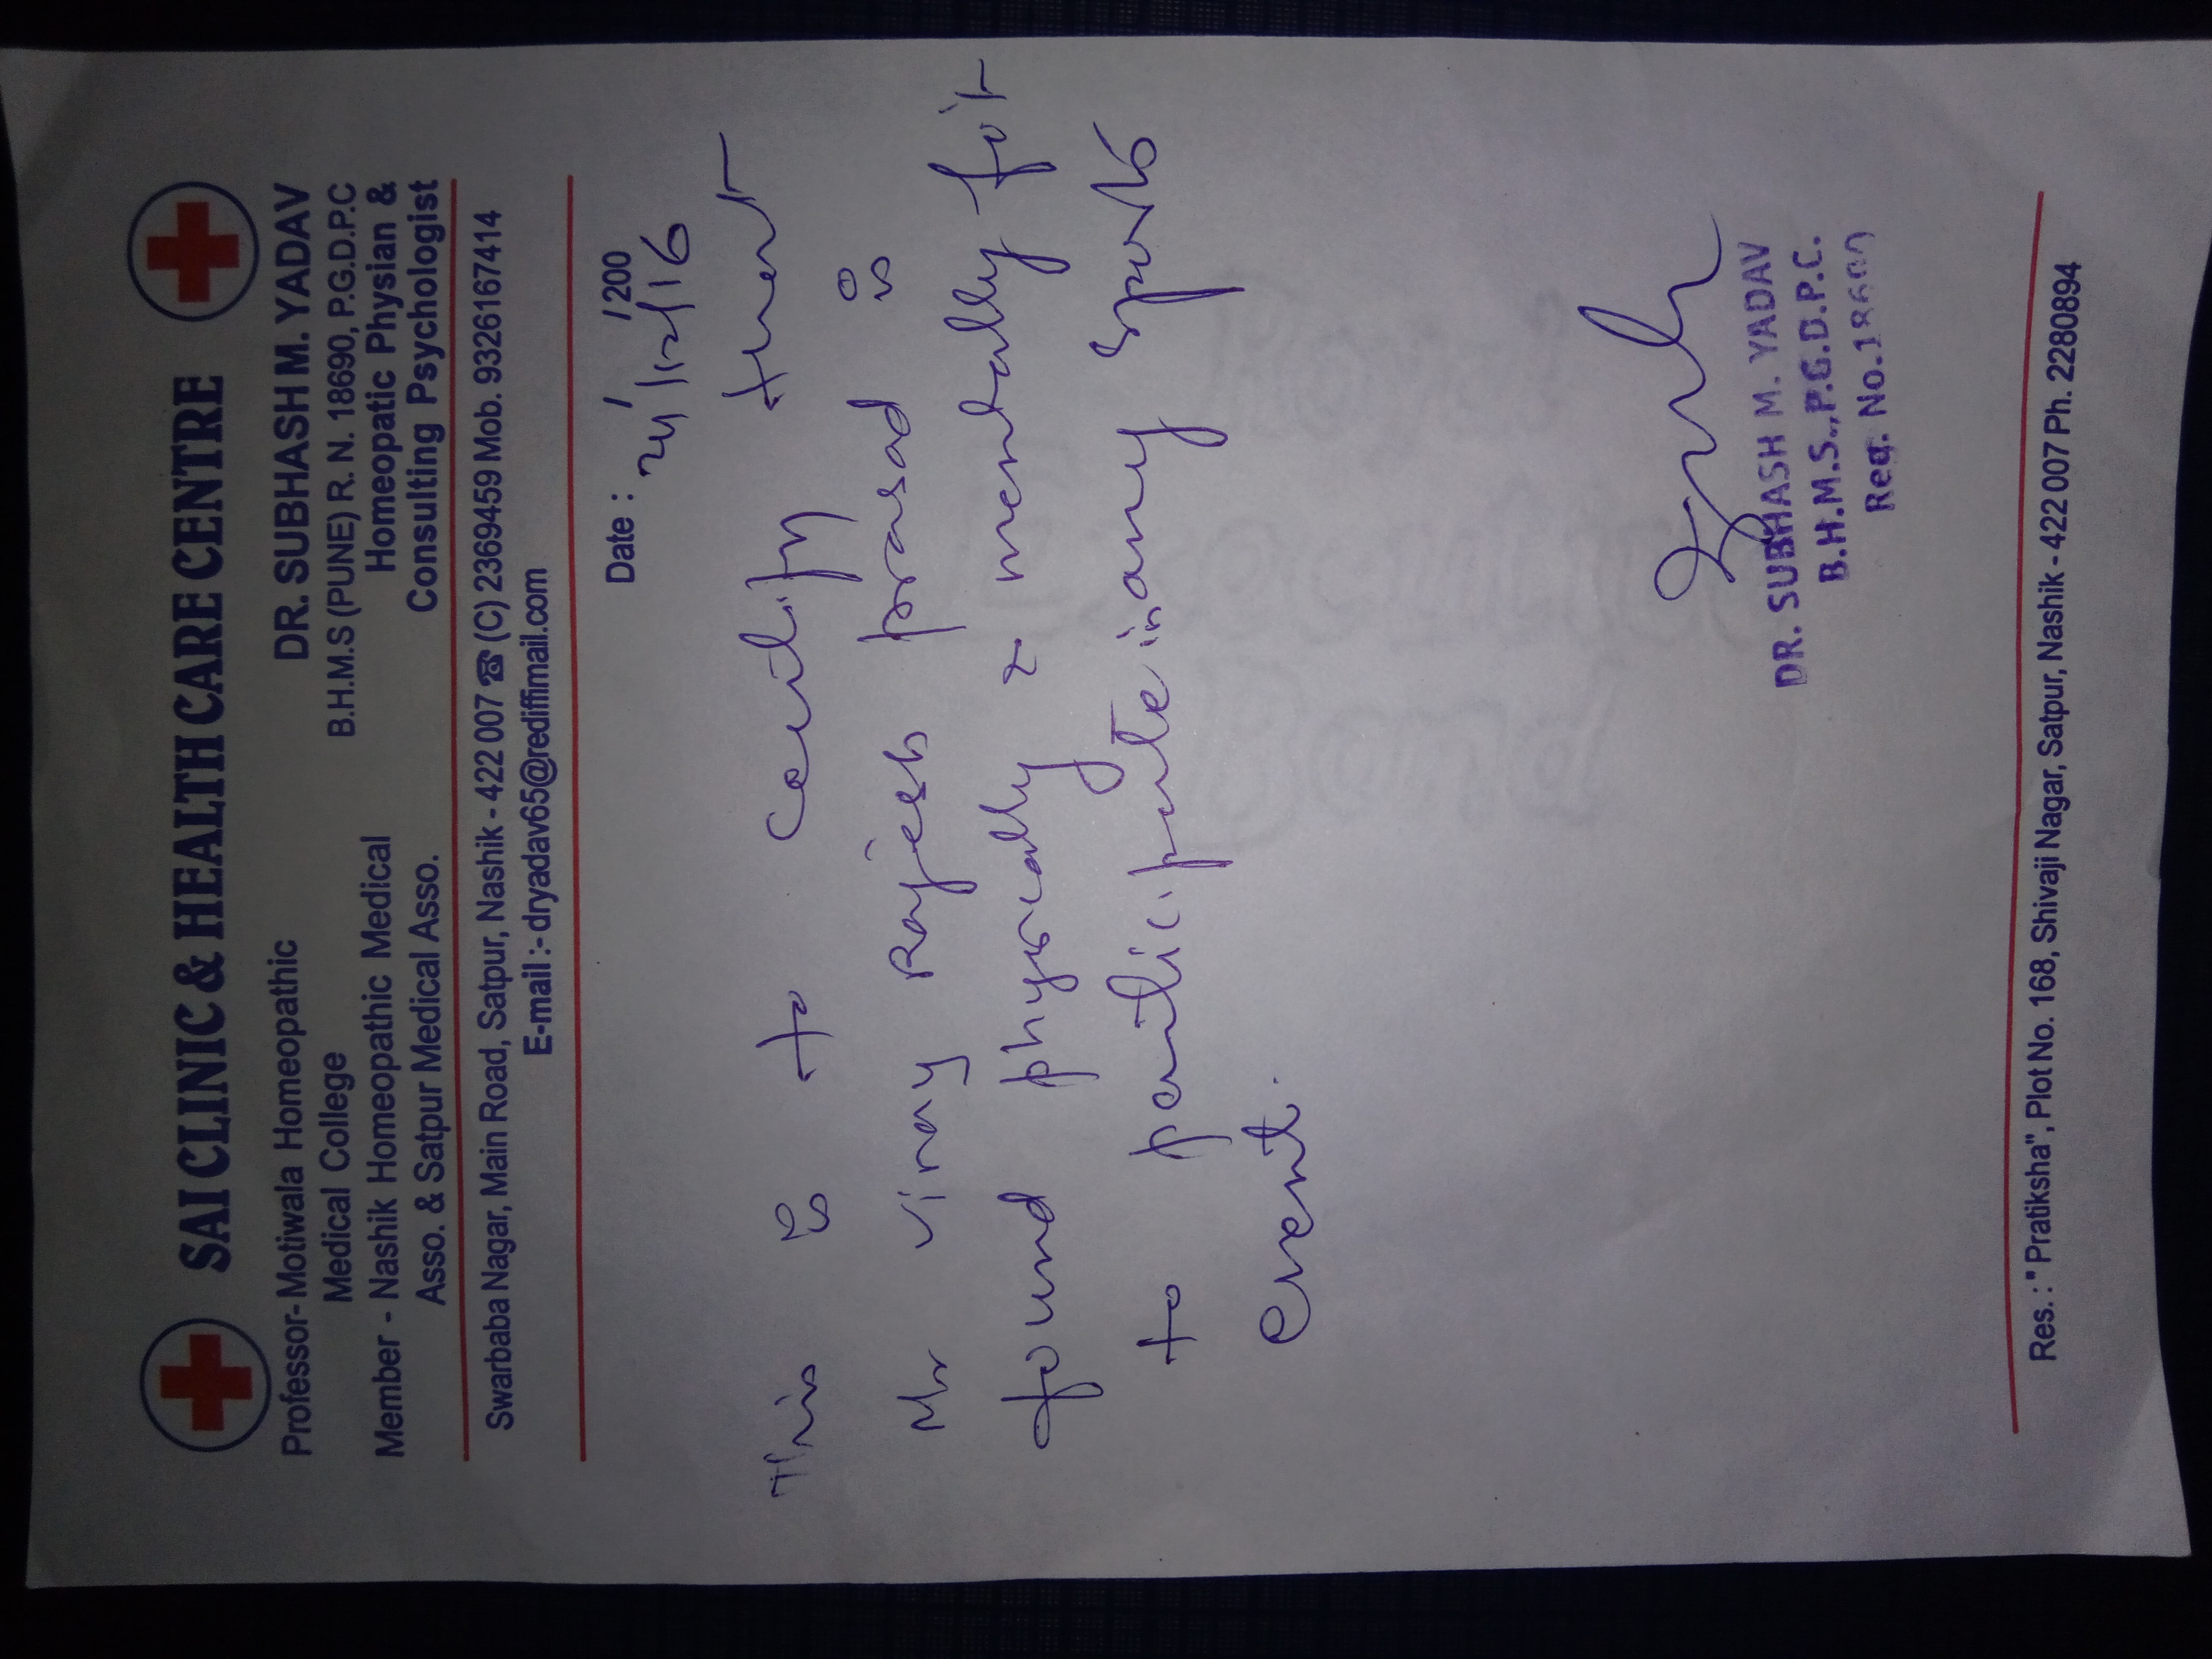 SAI CLINIC & HEALTH CARE CENTRE
Professor- Motiwala Homeopathic
Medical College
Member - Nashik Homeopathic Medical
Asso. & Satpur Medical Asso.
DR. SUBHASH M. YADAV
B.H.M.S (PUNE) R. N. 18690, P.G.D.P.C
Homeopatic Physian &
Consulting Psychologist
Swarbaba Nagar, Main Road, Satpur, Nashik - 422 007 ☎ (C) 2369459 Mob. 9326167414
E-mail :- dryadav65@rediffmail.com
Date : / / 200
24/12/16
This is to certify that
Mr Vinay Rajesh prasad is
found physically & mentally fit
to participate in any sports
event.
DR. SUBHASH M. YADAV
B.H.M.S., P.G.D.P.C.
Reg. No. 18690
Res. : " Pratiksha", Plot No. 168, Shivaji Nagar, Satpur, Nashik - 422 007 Ph. 2280894
Royal
Executive
Bond